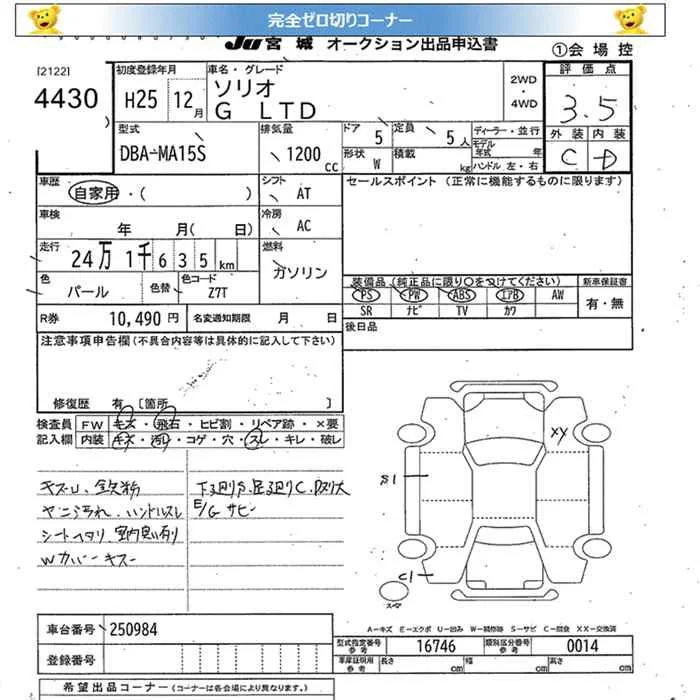 完全ゼロ切りコーナー
JU宮城 オークション出品申込書
①会場控
[2122]
4430
初度登録年月
H25 12月
車名・グレード
ソリオ
G LTD
2WD
・
4WD
評価点
3.5
外装 内装
C D
型式
DBA-MA15S
排気量
1200 CC
ドア 5
定員 5人
形状 W
積載 kg
ディーラー・並行
モデル年式 年
ハンドル 左・右
車歴
自家用・( )
シフト AT
セールスポイント (正常に機能するものに限ります)
車検
年 月( 日)
冷房 AC
走行
24万 1千 6 3 5 km
燃料
ガソリン
色
パール
色替
色コード
Z7T
装備品 (純正品に限り○をつけてください)
新車保証書
PS PW ABS エアB AW
有・無
SR ナビ TV カワ
R券 10,490 円
名変通知期限 月 日
後日品
注意事項申告欄 (不具合内容等は具体的に記入して下さい)
修復歴 有 [箇所
検査員記入欄
FW キズ・飛石・ヒビ割・リペア跡・×要
内装 キズ・汚レ・コゲ・穴・スレ・キレ・破レ
キズU、鉄粉
ヤニ汚れ、ハンドルスレ
シートヘタリ、室内臭い有り
Wカバーキズ
下廻りS、足廻りC、
E/G サビー
XY
S1
C1
スペア
A―キズ E―エクボ U―凹み W―補修跡 S―サビ C―腐食 XX―交換済
車台番号 250984
登録番号
型式指定番号 参考 16746
類別区分番号 参考 0014
車庫証明用 参考 長さ cm 幅 cm 高さ cm
希望出品コーナー (コーナーは各会場により異なります。)